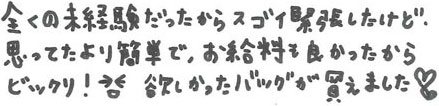 全くの未経験だったからスゴイ緊張したけど、
思ってたより簡単で、お給料も良かったから
ビックリ! 欲しかったバッグが買えました♡